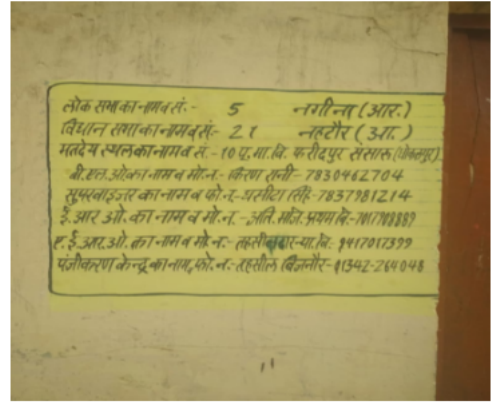 लोक सभा का नाम व सं.- 5 नगीना (आर.)
विधान सभा का नाम व सं.- 21 नहटौर (आ.)
मतदेय स्थल का नाम व सं.- 10 पू.मा.वि. फरीदपुर संसारू
बी.एल.ओ. का नाम व मो.न.- किरण रानी- 7830462704
सुपरवाइजर का नाम व फो.न.- घसीटा सिंह- 7837981214
ई.आर.ओ. का नाम व मो.न.- अति. मजि. प्रथम बि.-
ए.ई.आर.ओ. का नाम व मो.न.- तहसीलदार-धा. बि.- 9417017399
पंजीकरण केन्द्र का नाम, फो.न.- तहसील बिजनौर- 01342-264048